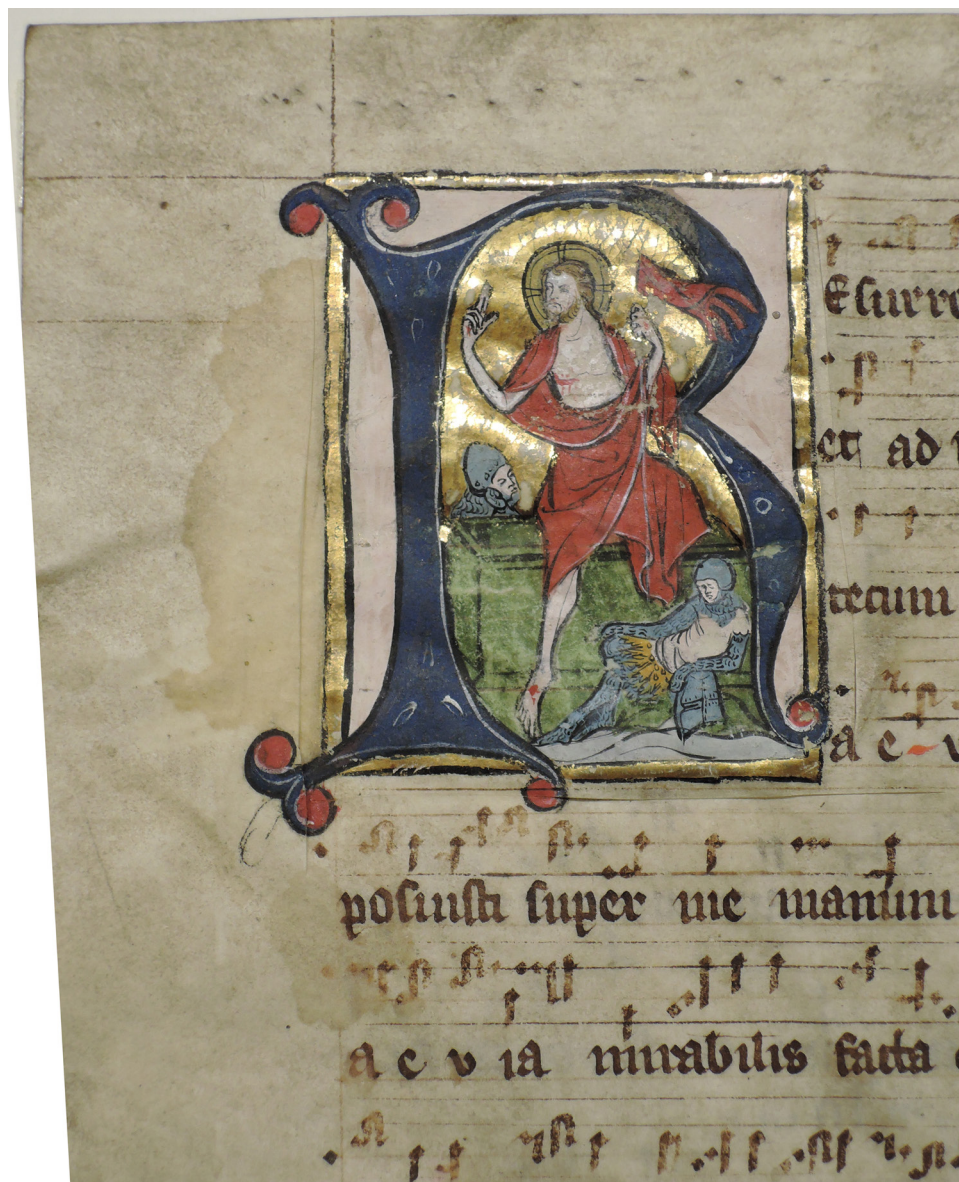 R Esurre
et ad
tecum
a e v
posuisti super me manum
a e v ia mirabilis facta